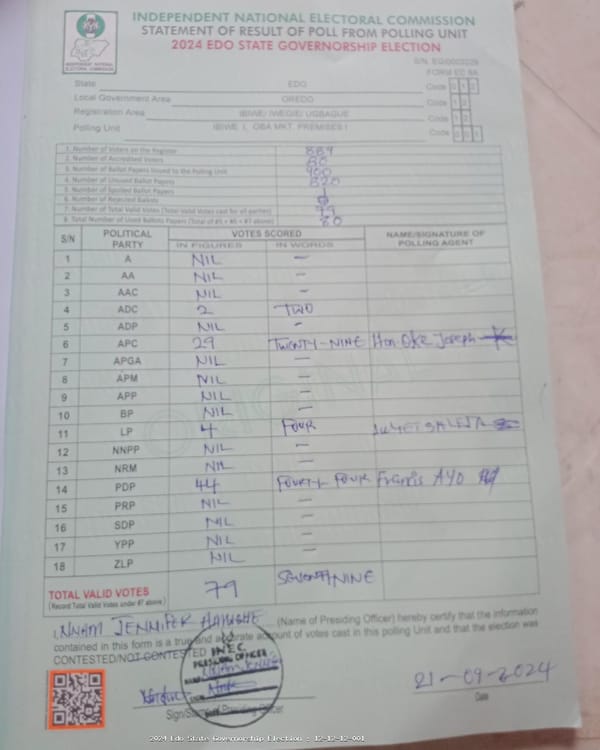 INDEPENDENT NATIONAL ELECTORAL COMMISSION
STATEMENT OF RESULT OF POLL FROM POLLING UNIT
2024 EDO STATE GOVERNORSHIP ELECTION
INDEPENDENT NATIONAL ELECTORAL COMMISSION
FORM EC 8A
State EDO Code 0 1 2
Local Government Area OREDO Code 1 2
Registration Area IBIWE/ IWEGIE/ UGBAGUE Code 1 2
Polling Unit IBIWE I, OBA MKT. PREMISES I Code 0 0 1
1. Number of Voters on the Register 889
2. Number of Accredited Voters 80
3. Number of Ballot Papers Issued to the Polling Unit 900
4. Number of Unused Ballot Papers 820
5. Number of Spoiled Ballot Papers
6. Number of Rejected Ballots
7. Number of Total Valid Votes (Total Valid Votes cast for all parties) 79
8. Total Number of Used Ballots Papers (Total of #5 + #6 + #7 above) 80
S/N POLITICAL PARTY VOTES SCORED NAME/SIGNATURE OF POLLING AGENT
IN FIGURES IN WORDS
1 A NIL —
2 AA NIL —
3 AAC NIL —
4 ADC 2 TWO
5 ADP NIL -
6 APC 29 TWENTY-NINE Hon. Oke Joseph
7 APGA NIL —
8 APM NIL —
9 APP NIL —
10 BP NIL —
11 LP 4 FOUR
12 NNPP NIL —
13 NRM NIL —
14 PDP 44 FOURTY FOUR Francis AYO
15 PRP NIL —
16 SDP NIL —
17 YPP NIL —
18 ZLP NIL
TOTAL VALID VOTES 79 SEVENTY NINE
(Record Total Valid Votes under #7 above)
I, NNAM JENNIFER (Name of Presiding Officer) hereby certify that the information
contained in this form is a true and accurate account of votes cast in this polling Unit and that the election was
CONTESTED/NOT CONTESTED
INEC
PRESIDING OFFICER
21-09-2024
Sign/Stamp of Presiding Officer
Date
2024 Edo State Governorship Election : 12-12-12-001